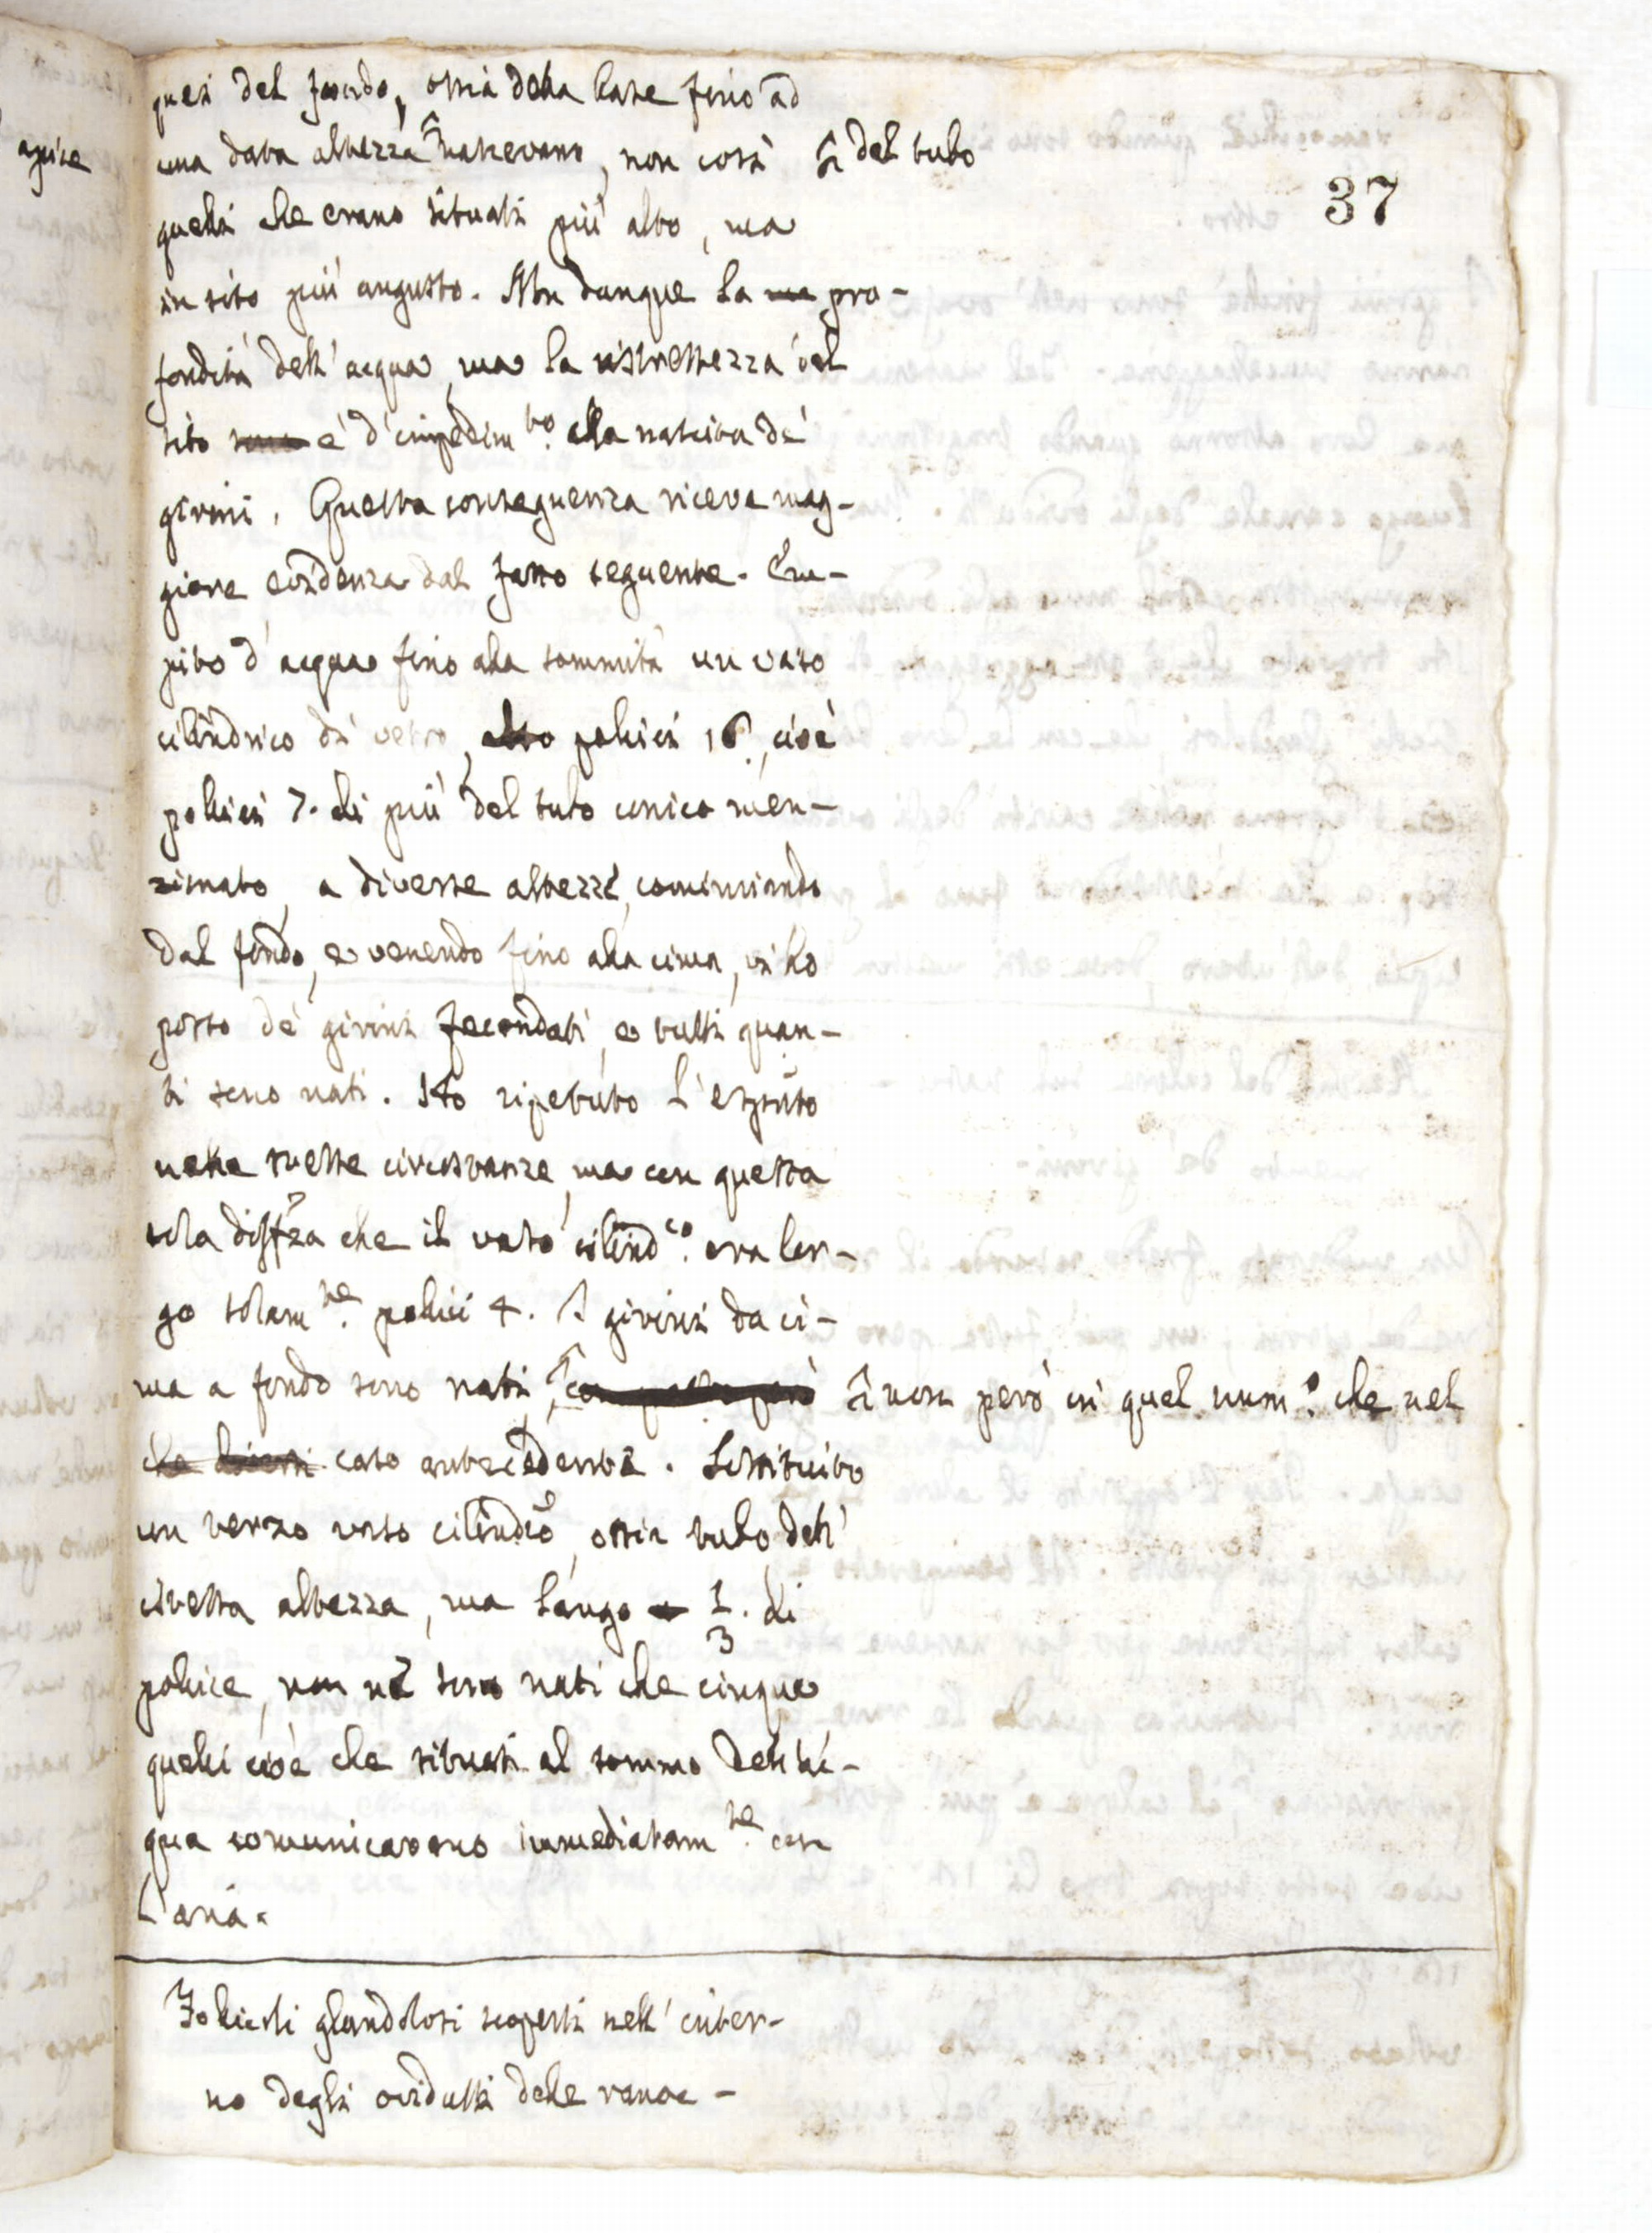 37
quei del fondo, ossia della base fino ad
apice
una data altezza nascevano, non così del tubo
quelli che erano situati più alto, ma
in sito più angusto. Non dunque la pro-
fondità dell' acqua, ma la ristrettezza del
sito è d' impedim.to alla nascita de'
girini. Questa conseguenza riceve mag-
giore evidenza dal fatto seguente. Em-
pito d' acqua fino alla sommità un vaso
cilindrico di vetro, alto pollici 16, cioè
pollici 7. di più del tubo conico men-
zionato, a diverse altezze, cominciando
dal fondo, e venendo fino alla cima, vi ho
posto de' girini fecondati, e tutti quan-
ti sono nati. Ho ripetuto l' esptŏ
nelle stesse circostanze, ma con questa
sola diffza che il vaso cilind.co era lar-
go solam.te pollici 4. I girini da ci-
ma a fondo sono nati, non però in quel num.o che nel
caso antecedente. Sostituito
un terzo vaso cilindco, ossia tubo dell'
istessa altezza, ma largo 1/3. di
pollice, non ne sono nati che cinque
quelli cioè che situati al sommo dell' ac-
qua comunicavano immediatam.te con
l' aria.
Follicoli glandolosi scoperti nell' inter-
no degli ovidutti delle rane -